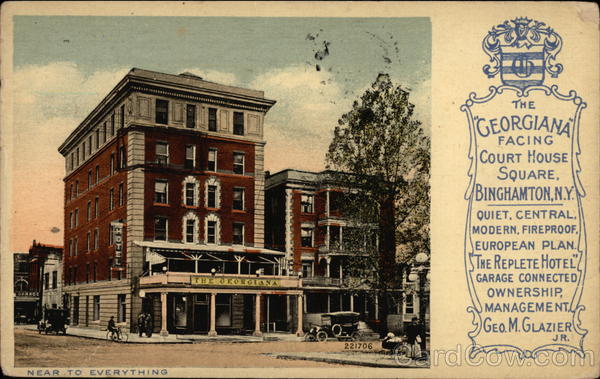 THE
"GEORGIANA"
FACING
COURT HOUSE
SQUARE,
BINGHAMTON, N.Y.
QUIET, CENTRAL,
MODERN, FIREPROOF,
EUROPEAN PLAN.
"THE REPLETE HOTEL"
GARAGE CONNECTED
OWNERSHIP,
MANAGEMENT,
GEO. M. GLAZIER
JR.
HOTEL
THE GEORGIANA
GARAGE
221706
NEAR TO EVERYTHING
CardCow.com